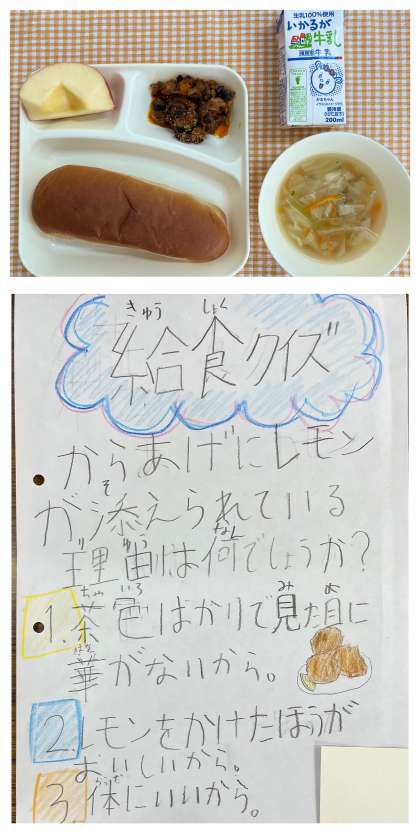 生乳100%使用
いかるが
牛乳
200ml
きゅう しょく
給食クイズ
からあげにレモン
そ
が添えられている
りゆう なん
理由は何でしょうか?
ちゃ いろ み め
1.茶色ばかりで見た目に
はな
華がないから。
2.レモンをかけたほうが
おいしいから。
からだ
3.体にいいから。